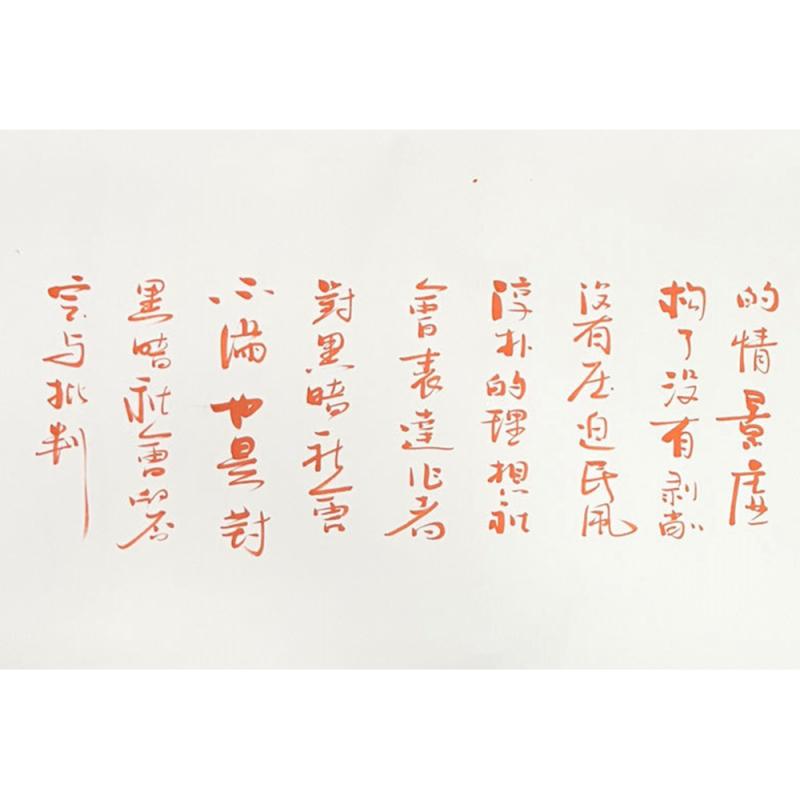 的情景虚
构了没有剥削
没有压迫民风
淳朴的理想社
會表達作者
對黑暗社會
不满也是對
黑暗社會的否
定与批判